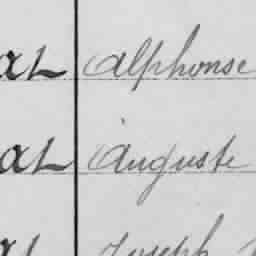 AL Alphonse
AL Auguste
AL Joseph